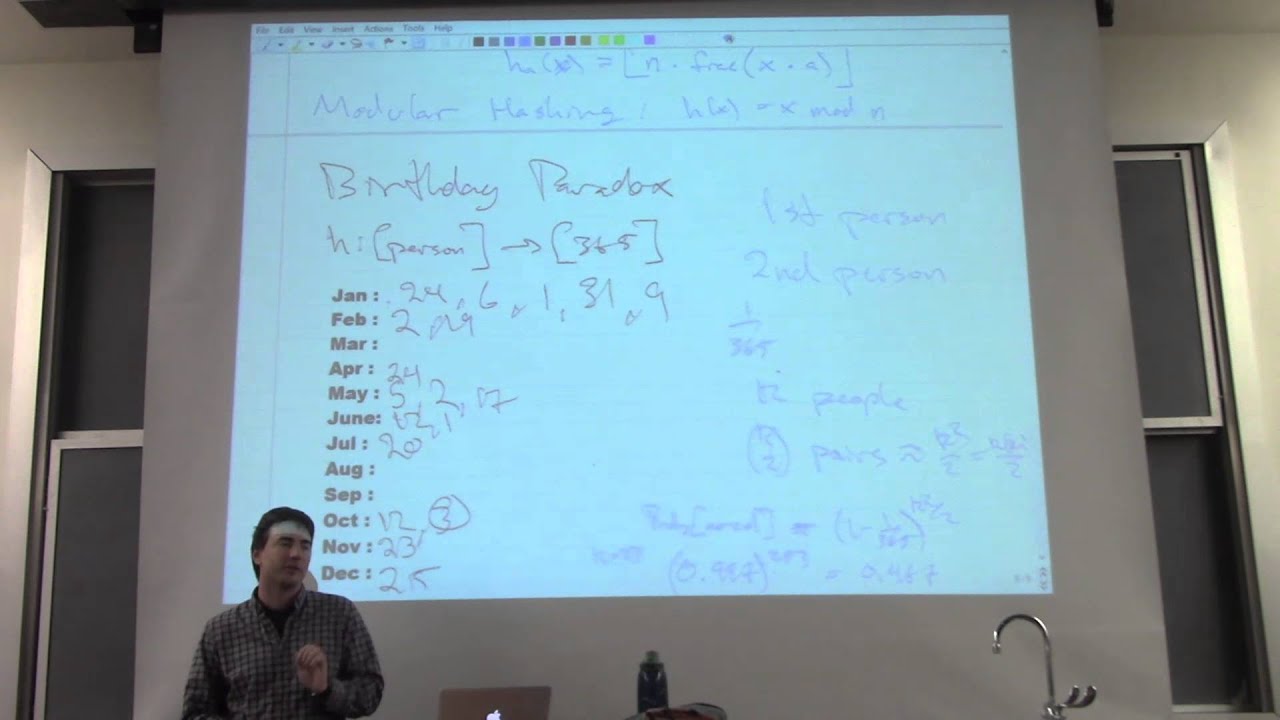 File Edit View Insert Actions Tools Help
hₐ(x) = ⌊n · frac(x · a)⌋
Modular Hashing: h(x) = x mod n
Birthday Paradox
h: [person] → [365]
Jan : 24, 6, 1, 31, 9
Feb : 2, 29
Mar :
Apr : 24
May : 5, 2, 17
June: 12, 1
Jul : 20
Aug :
Sep :
Oct : 12, 3
Nov : 23
Dec : 25
1st person
2nd person
1/365
k people
(k 2) pairs ≈ k²/2
= (1 - 1/365)
(0.997)²⁵³ = 0.467